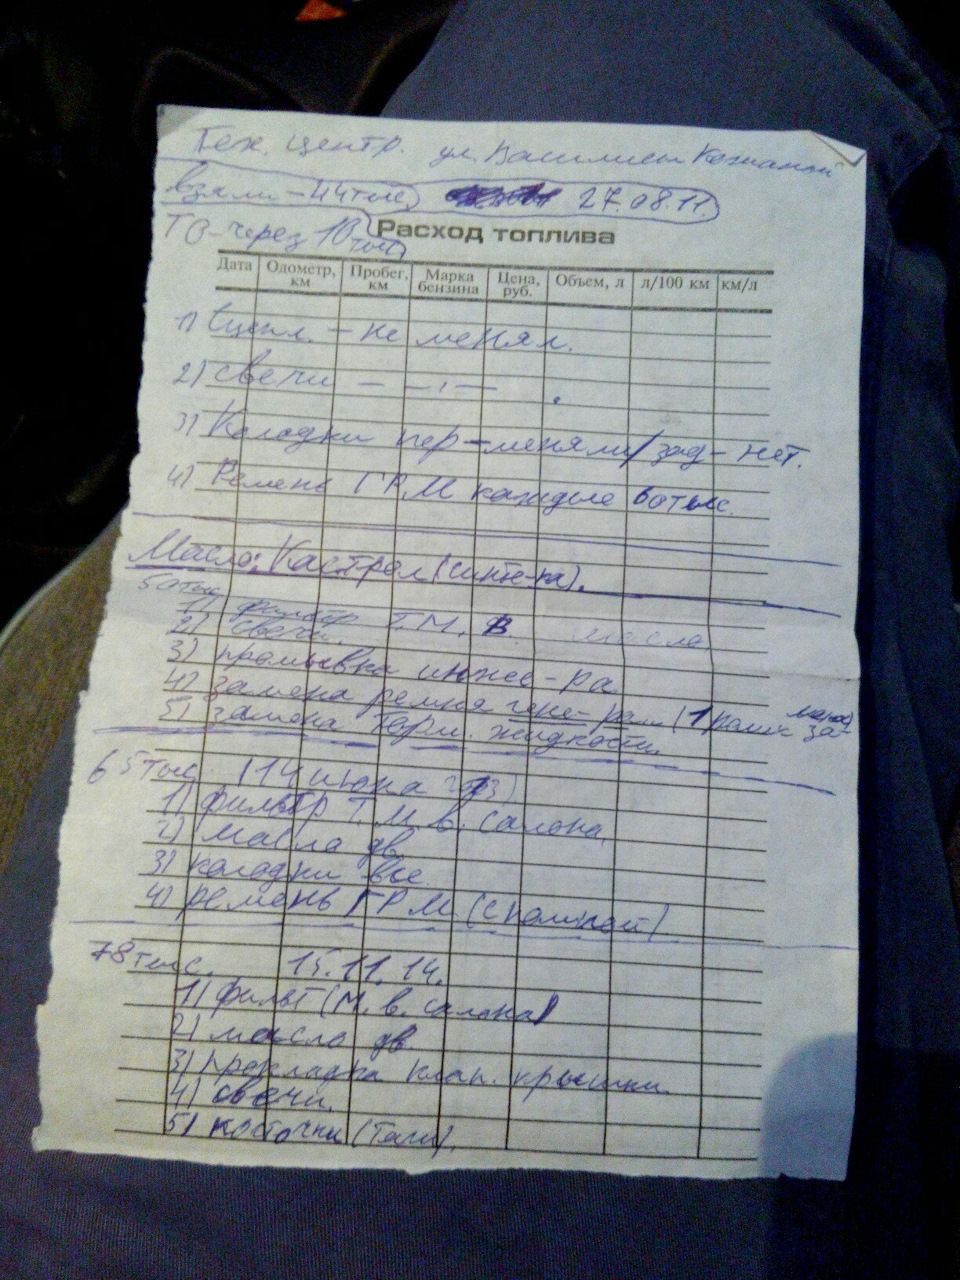 Тех. центр. ул. Василисы Кожиной
взяли - 44 тыс. 27.08.11.
ТО - через 10 тыс
Расход топлива
Дата Одометр, км Пробег, км Марка бензина Цена, руб. Объем, л л/100 км км/л
1) Сцепл. - не менял.
2) свечи — — ı —
3) Колодки пер - меняли / зад - нет.
4) Ремень ГРМ каждые 60 тыс.
Масло: Кастрол (синте-ка).
50 тыс.
1) фильтр Т. М. В. масла
2) свечи.
3) промывка инжек-ра
4) замена ремня гене-ра (1 ролик за-мена)
5) замена торм. жидкости.
65 тыс. (14 июня
1) фильтр Т. М. в. салона,
2) масла дв
3) колодки все.
4) ремень ГРМ (с помпой)
78 тыс. 15.11.14.
1) фильт (М. в. салона)
2) масло дв
3) прокладка клап. крышки.
4) свечи.
5) косточки (тяги).